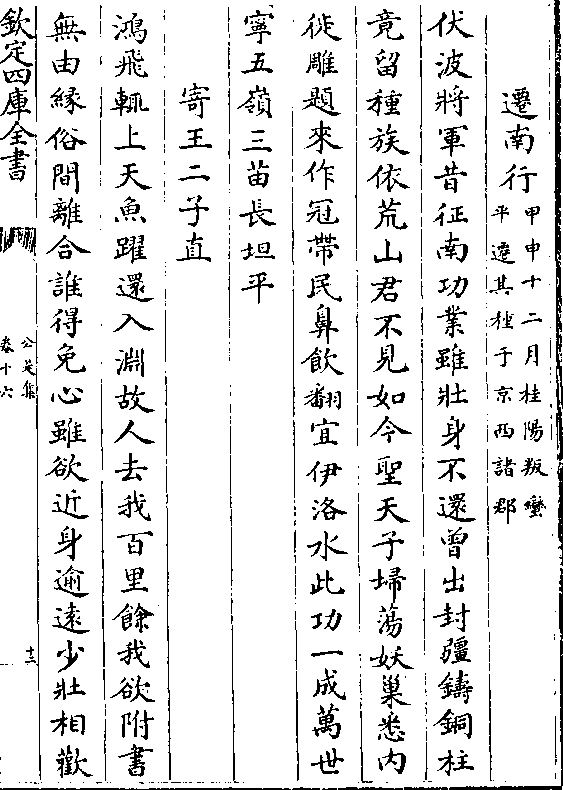 遷南行甲申十二月桂陽叛蠻
平遷其種于京西諸郡
伏波將軍昔征南功業雖壯身不還曾出封疆鑄銅柱
竟留種族依荒山君不見如今聖天子埽蕩妖巢悉内
徙雕題來作冠帶民鼻飲翻宜伊洛水此功一成萬世
寧五嶺三苗長坦平
寄王二子直
鴻飛輒上天魚躍還入淵故人去我百里餘我欲附書
無由緣俗間離合誰得免心雖欲近身逾遠少壯相歡
欽定四庫全書
公是集
卷十六
十三